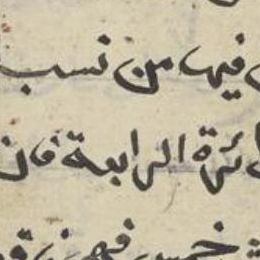 فيها من نسب
ئرة الرابعة فان
خمس فهي